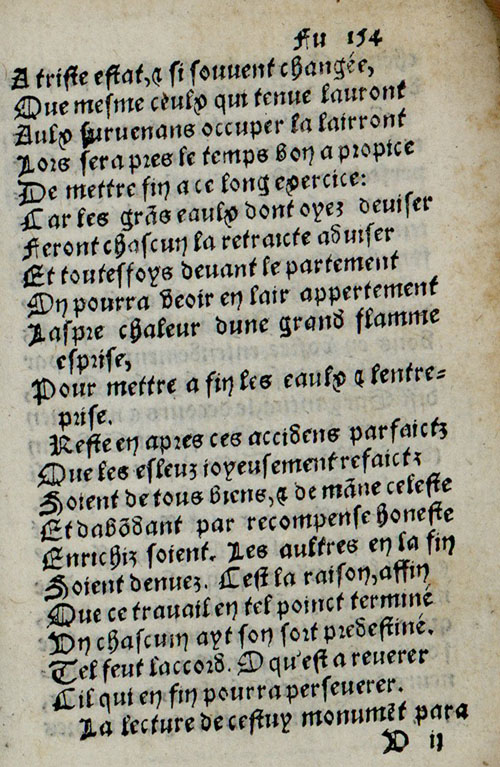 Fu 154
A triste estat, & si souvent changée,
Que mesme ceulx qui tenue lauront
Aulx survenans occuper la lairront
Lors sera pres le temps bon a propice
De mettre fin a ce long exercice:
Car les grãs eaulx dont oyez deviser
Feront chascun la retraicte adviser
Et toutesfoys devant le partement
On pourra veoir en lair appertement
Laspre chaleur dune grand flamme
esprise,
Pour mettre a fin les eaulx & lentre-
prise.
Reste en apres ces accidens parfaictz
Que les esleuz ioyeusement refaictz
Soient de tous biens, & de mãne celeste
Et dabõdant par recompense honeste
Enrichiz soient. Les aultres en la fin
Soient denuez. Cest la raison, affin
Que ce travail en tel poinct terminé
Vn chascun ayt son sort predestiné.
Tel feut laccord. O qu'est a reverer
Cil qui en fin pourra perseverer.
La lecture de cestuy monumẽt para
V ii